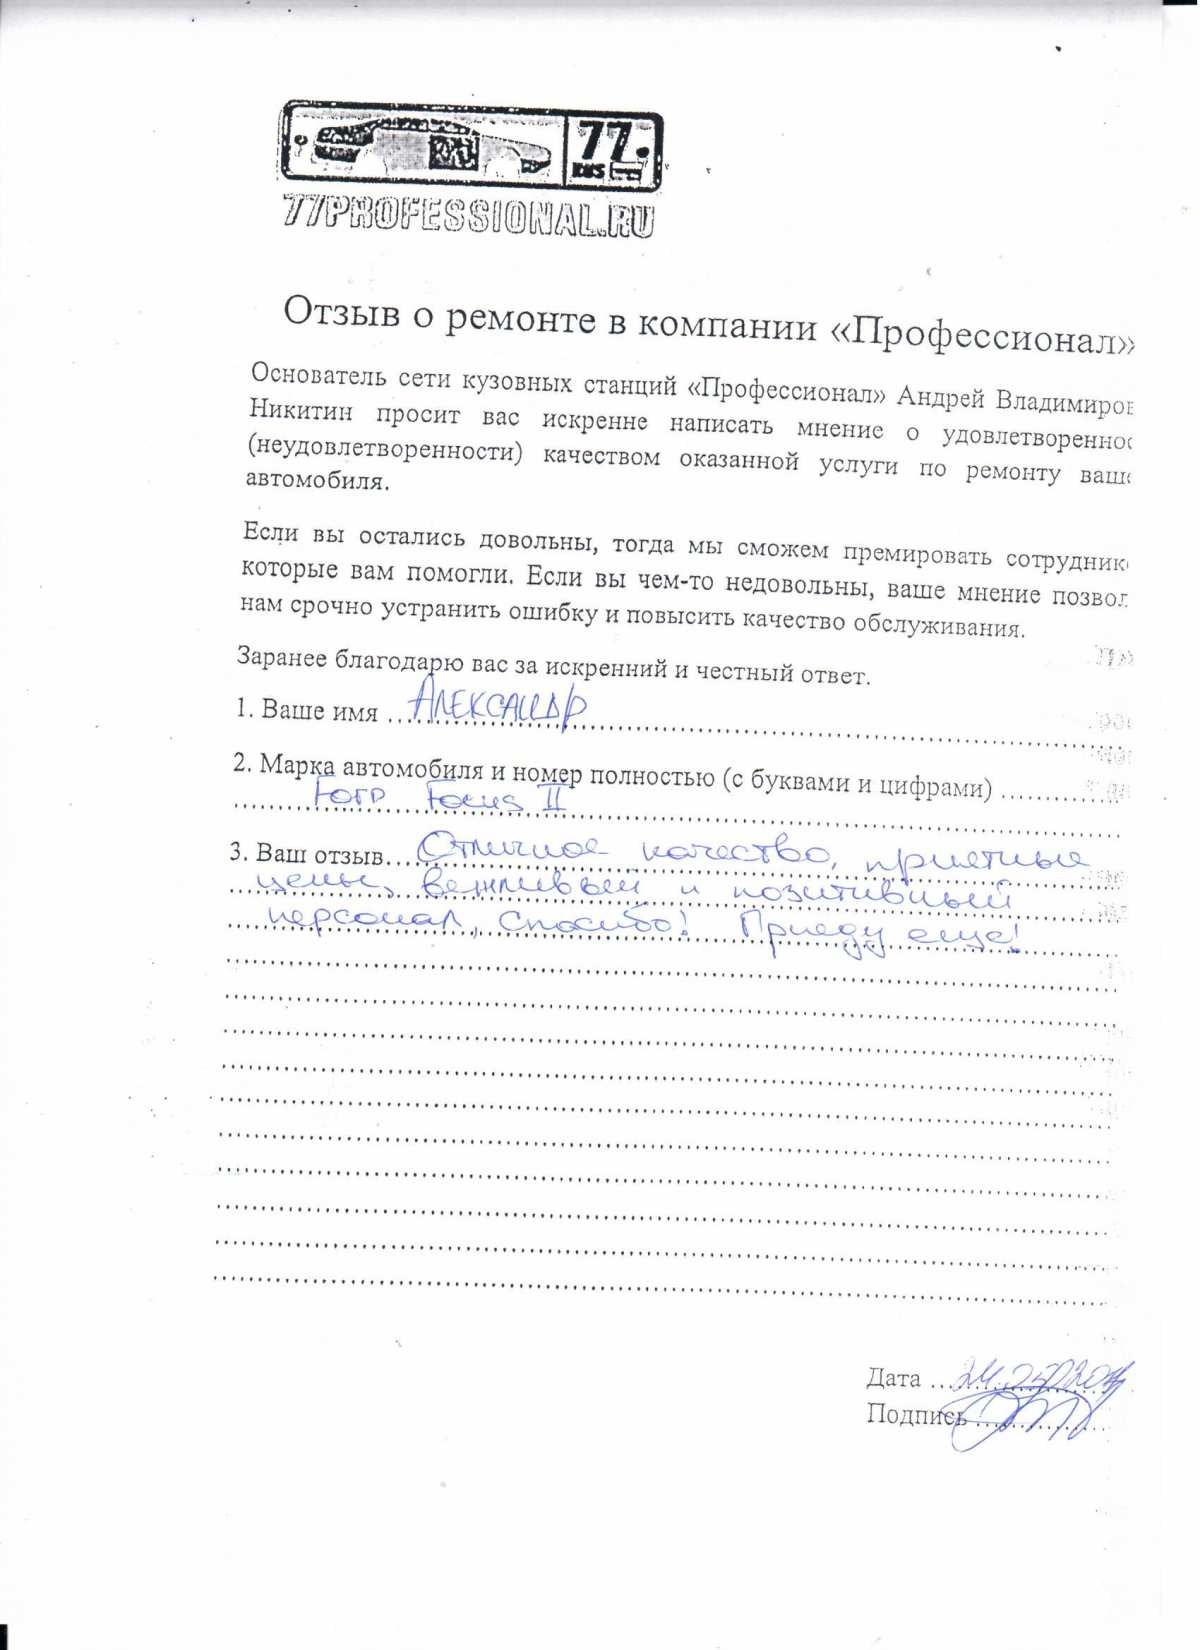 77.
RUS
77PROFESSIONAL.RU
Отзыв о ремонте в компании «Профессионал»
Основатель сети кузовных станций «Профессионал» Андрей Владимиров
Никитин просит вас искренне написать мнение о удовлетвореннос
(неудовлетворенности) качеством оказанной услуги по ремонту ваше
автомобиля.
Если вы остались довольны, тогда мы сможем премировать сотруднико
которые вам помогли. Если вы чем-то недовольны, ваше мнение позвол
нам срочно устранить ошибку и повысить качество обслуживания.
Заранее благодарю вас за искренний и честный ответ.
1. Ваше имя Александр
2. Марка автомобиля и номер полностью (с буквами и цифрами)
Ford Focus II
3. Ваш отзыв Отличное качество, приятные
цены, вежливый и позитивный
персонал, Спасибо! Приеду еще!
Дата
Подпись